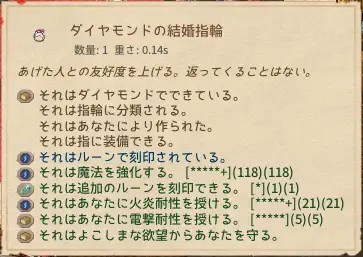 ダイヤモンドの結婚指輪
数量: 1 重さ: 0.14s
あげた人との友好度を上げる。返ってくることはない。
それはダイヤモンドでできている。
それは指輪に分類される。
それはあなたにより作られた。
それは指に装備できる。
それはルーンで刻印されている。
それは魔法を強化する。 [*****+](118)(118)
それは追加のルーンを刻印できる。 [*](1)(1)
それはあなたに火炎耐性を授ける。 [*****+](21)(21)
それはあなたに電撃耐性を授ける。 [*****](5)(5)
それはよこしまな欲望からあなたを守る。